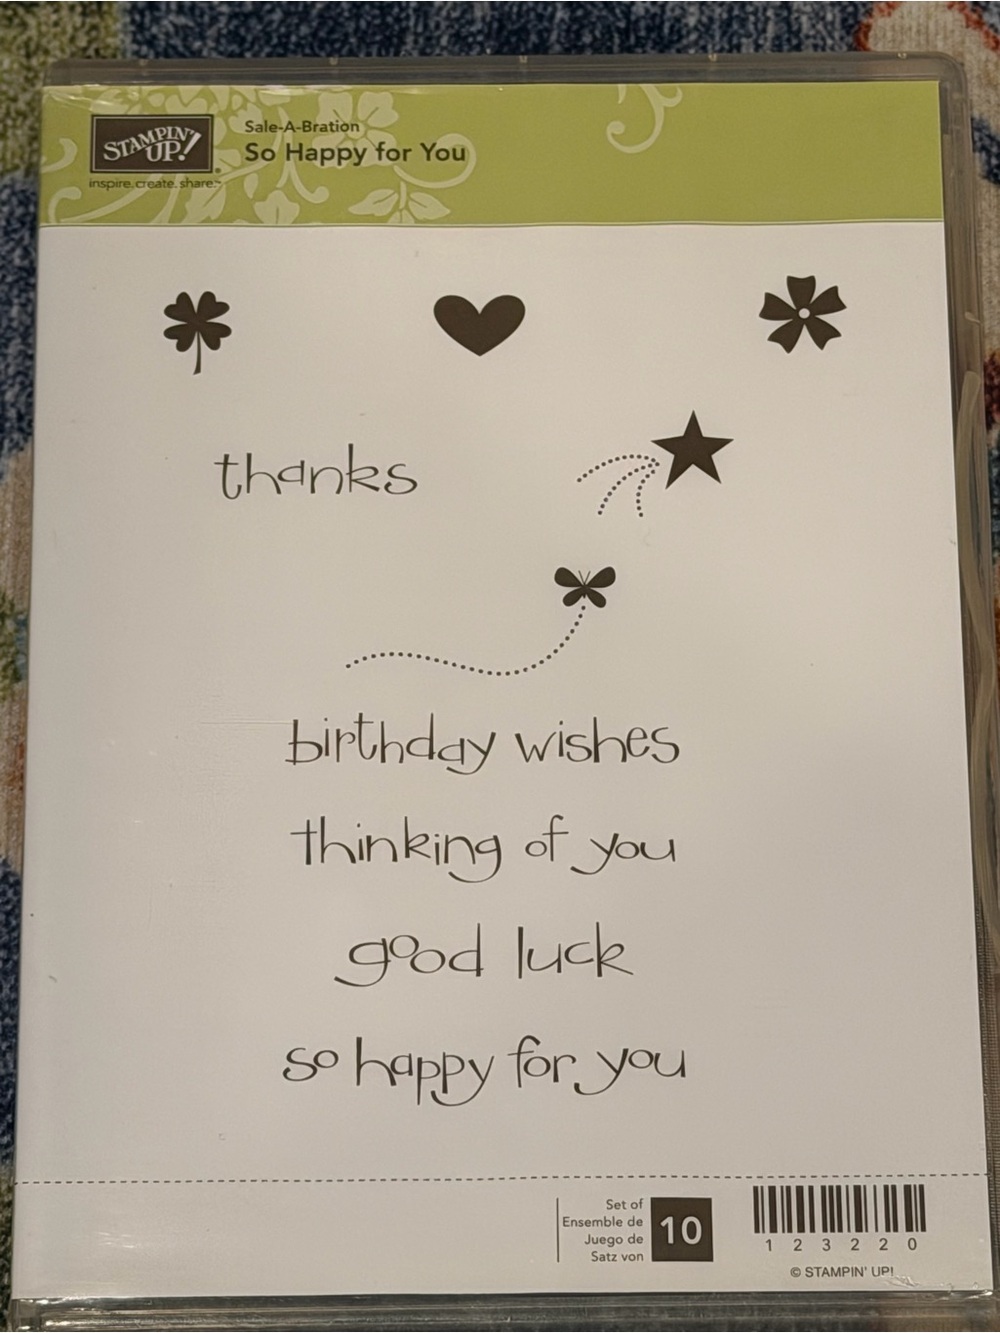 STAMPIN' UP!
inspire.create.share.™
Sale-A-Bration
So Happy for You
thanks
birthday wishes
thinking of you
good luck
so happy for you
Set of
Ensemble de
Juego de
Satz von
10
1 2 3 2 2 0
© STAMPIN' UP!